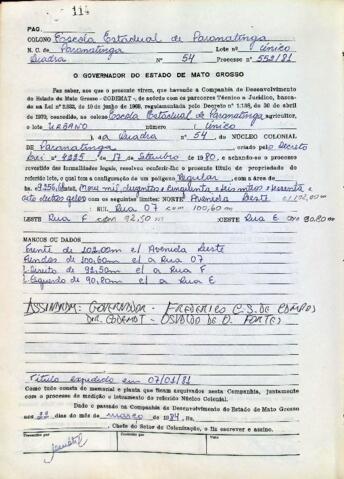 114
PAG.
COLONO Escola Estadual de Paranatinga
N. C. de Paranatinga Lote nº Único
Quadra Nº 54 Processo nº 552/81
O GOVERNADOR DO ESTADO DE MATO GROSSO
Faz saber, aos que a presente virem, que havendo a Companhia de Desenvolvimento
do Estado de Mato Grosso - CODEMAT -, de acordo com os pareceres Técnico e Jurídico, basca-
na Lei nº de 10 de junho de regulamentada pelo Decreto n.º 1.138, de 30 de abril
de 1970, concedido, ao colono Escola Estadual de Paranatinga agricultor,
o lote URBANO número Único
a Quadra nº 54, do NÚCLEO COLONIAL
DE Paranatinga criado pelo Decreto
Lei nº de 17 de Setembro de 1980, e achando-se o processo
revestido das formalidades legais, resolveu conferir-lhe o presente título de propriedade do
referido lote, o qual tem a configuração de um polígono Regular com a área de
9.256, nove mil, duzentos e cinquenta e seis metros e sessenta e
oito com os seguintes limites: NORTE Avenida Oeste c/102,00m
SUL Rua 07 com 100,60m
LESTE Rua F com 92,50m OESTE Rua E com 90,80m
MARCOS OU DADOS
Frente de 102,00m c/ Avenida Oeste
Fundos de 100,60m c/ a Rua 07
L. Direito de 92,50m c/ a Rua F
L. Esquerdo de 90,80m c/ a Rua E
ASSINARAM: GOVERNADOR - FREDERICO C. S. DE CAMPOS
DIR. CODEMAT - OSVALDO DE O. FORTES
Título expedido em 07/01/81
Como tudo consta do memorial e planta que ficam arquivados nesta Companhia, juntamente
com o processo de medição e loteamento do referido Núcleo Colonial.
Dado e passado na Companhia de Desenvolvimento do Estado de Mato Grosso
aos 22 dias do mês de março de 1984. Eu
Chefe do Setor de Colonização, o fiz escrever e assino.
Transcrito por Conferido por Visto